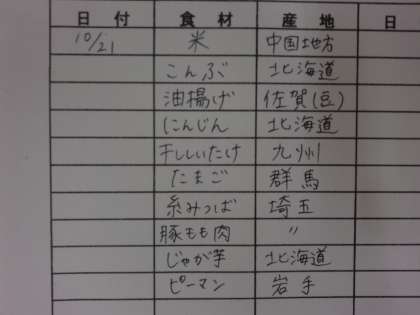 日付 食材 産地 日
10/21 米 中国地方
こんぶ 北海道
油揚げ 佐賀(豆)
にんじん 北海道
干ししいたけ 九州
たまご 群馬
糸みつば 埼玉
豚もも肉 〃
じゃが芋 北海道
ピーマン 岩手